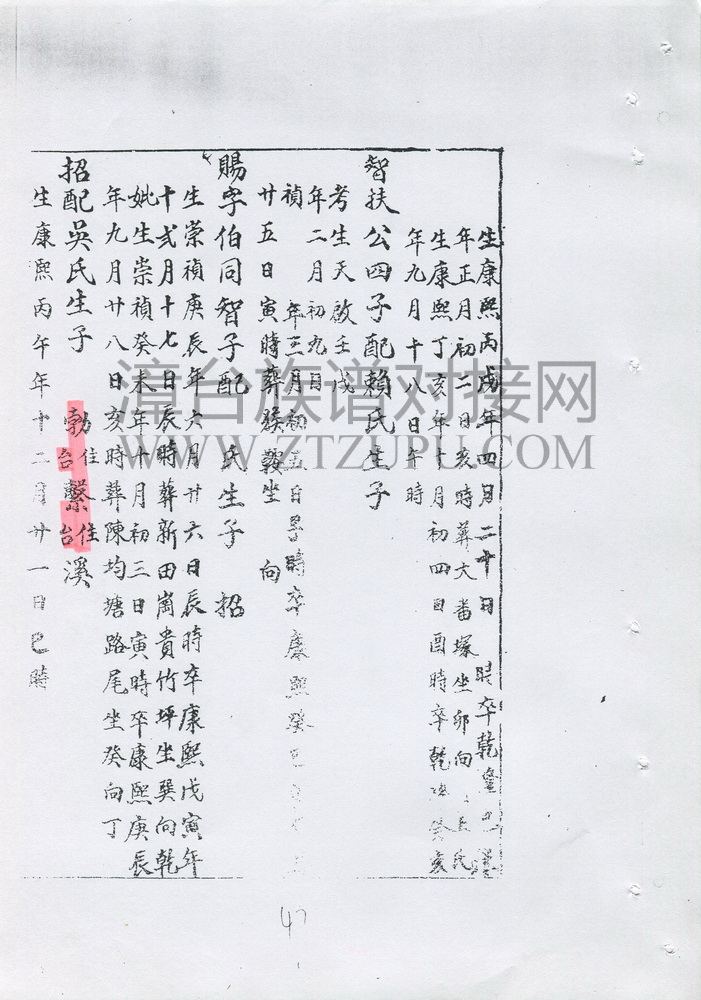 生康熙丙戌年四月二十日 時卒乾隆
年正月初二日亥時葬大番塚坐卯向 氏
生康熙丁亥年十月初四日酉時卒乾隆癸亥
年九月十八日午時
智扶公四子配賴氏生子
考生天啟壬戌
年二月初九日
禎 年三月初五日 時卒康熙癸
廿五日寅時葬 鞍坐 向
賜字伯同智子配 氏生子 招
生崇禎庚辰年六月廿六日辰時卒康熙戊寅年
十弍月十七日辰時葬新田崗貴竹坪坐巽向乾
妣生崇禎癸未年十月初三日寅時卒康熙庚辰
年九月廿八日亥時葬陳均塘路尾坐癸向丁
招配吳氏生子 勃住台 繫住台 溪
生康熙丙午年十二月廿一日巳時
漳台族谱对接网
WWW.ZTZUPU.COM
47